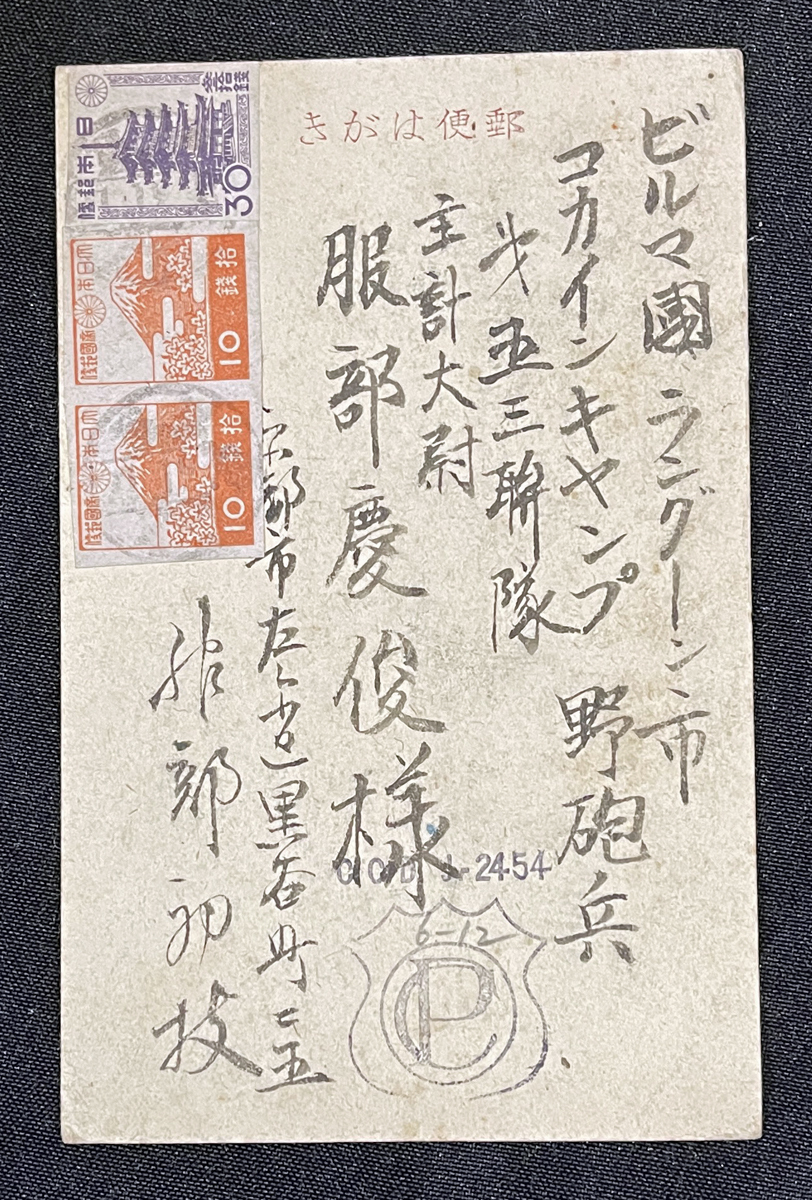 郵便はがき
ビルマ國ラングーン市
コカインキャンプ 野砲兵
才五三聯隊
主計大尉
服部慶俊様
京都市左
黒谷町
服部初枝
日本郵便
参拾錢
30
大日本帝國郵便
拾錢
10
大日本帝國郵便
拾錢
10
J-2454
6-12
CP